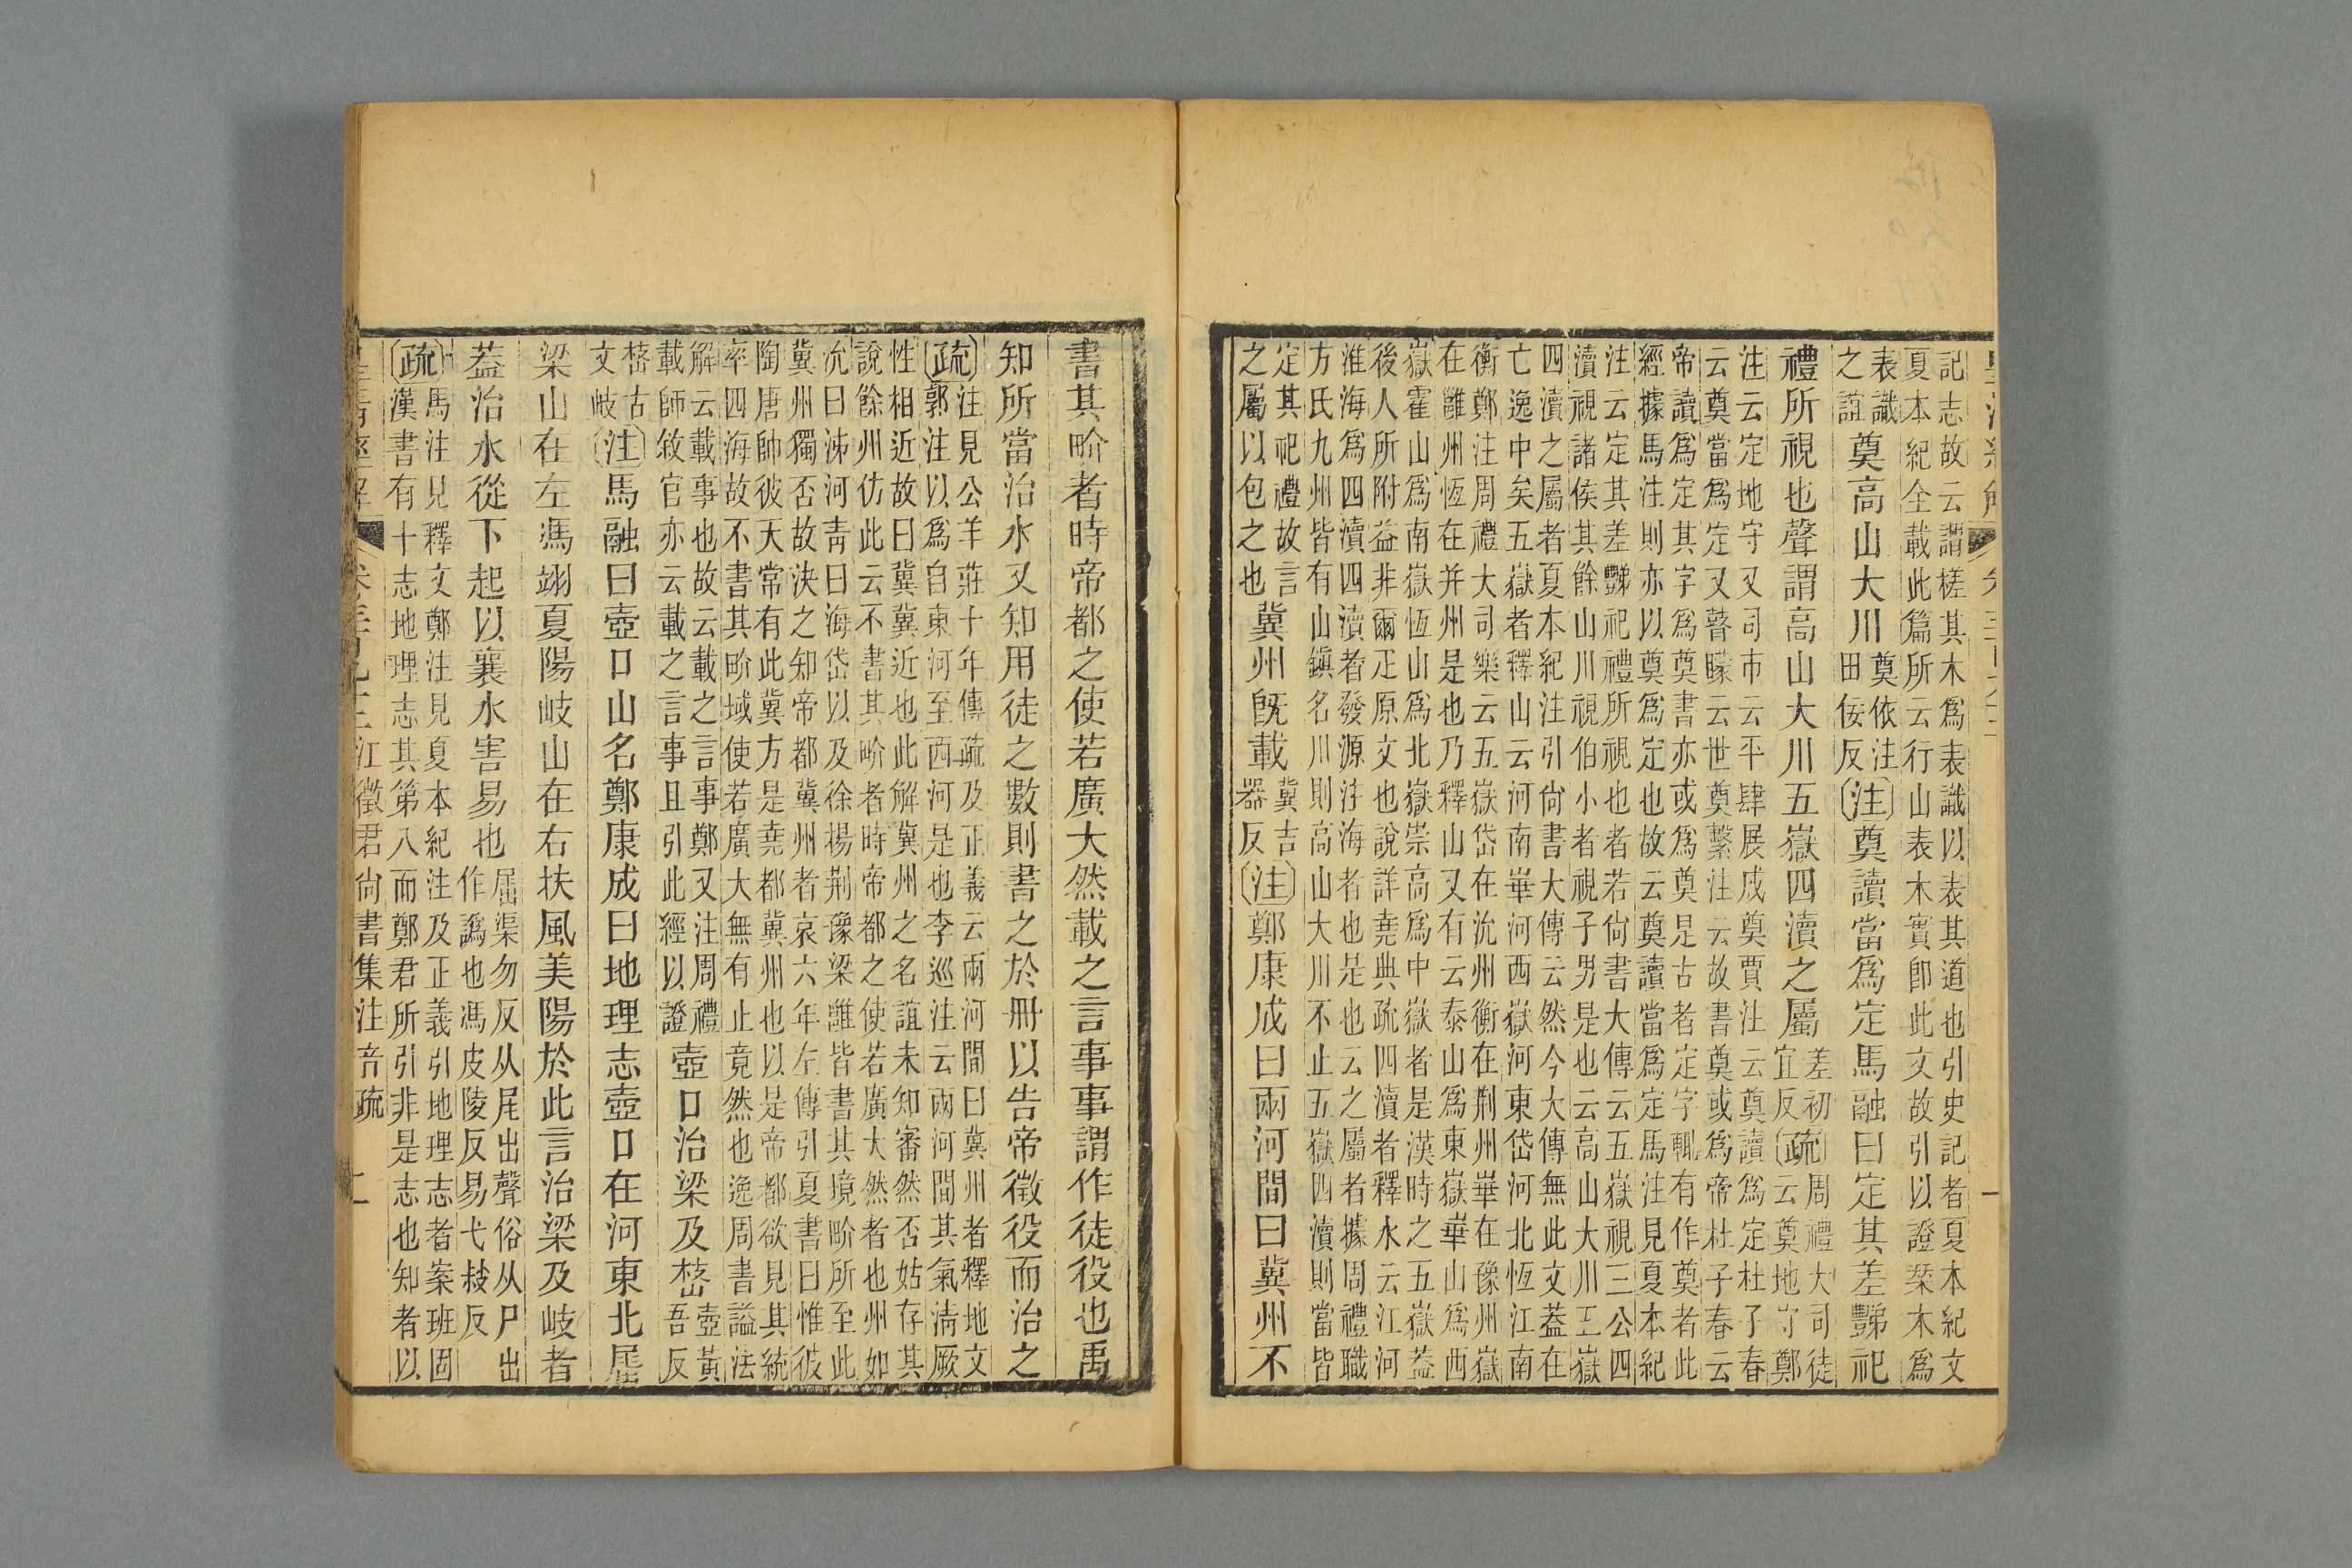 記志故云謂槎其木爲表識以表其道也引史記者夏本紀文
夏本紀全載此篇所云行山表木實卽此文故引以證栞木爲
表識
之誼
奠高山大川
奠依注
田佞反
注奠讀當爲定馬融曰定其差豑祀
禮所視也聲謂高山大川五嶽四瀆之屬
差初
宜反
疏
周禮大司徒
云奠地守鄭
注云定地守又司巿云平肆展成奠賈注云奠讀爲定杜子春
云奠當爲定又瞽矇云世奠繫注云故書奠或爲帝杜子春云
帝讀爲定其字爲奠書亦或爲奠是古者定字輒有作奠者此
經據馬注則亦以奠爲定也故云奠讀當爲定馬注見夏本紀
注云定其差豑祀禮所視也者若尙書大傳云五嶽視三公四
瀆視諸侯其餘山川視伯小者視子男是也云高山大川五嶽
四瀆之屬者夏本紀注引尙書大傳云然今大傳無此文葢在
亡逸中矣五嶽者釋山云河南崋河西嶽河東岱河北恆江南
衡鄭注周禮大司樂云五嶽岱在沇州衡在荆州崋在豫州嶽
在雝州恆在并州是也乃釋山又有云泰山爲東嶽崋山爲西
嶽霍山爲南嶽恆山爲北嶽崇高爲中嶽者是漢時之五嶽葢
後人所附益非爾疋原文也說詳堯典疏四瀆者釋水云江河
淮海爲四瀆四瀆者發源注海者也是也云之屬者據周禮職
方氏九州皆有山鎭名川則高山大川不止五嶽四瀆則當皆
定其祀禮故言
之屬以包之也
冀州旣載
冀吉
器反
注鄭康成曰兩河閒曰冀州不
書其畍者時帝都之使若廣大然載之言事事謂作徒役也禹
知所當治水又知用徒之數則書之於冊以告帝徵役而治之
疏
注見公羊莊十年傳疏及正義云兩河閒曰冀州者釋地文
郭注以爲自東河至西河是也李巡注云兩河閒其氣淸厥
性相近故曰冀冀近也此解冀州之名誼未知審然否姑存其
說餘州仿此云不書其畍者時帝都之使若廣大然者也州如
沇曰泲河靑曰海岱以及徐揚荆豫梁雝皆書其境畍所至此
冀州獨否故決之知帝都冀州者哀六年左傳引夏書曰惟彼
陶唐帥彼天常有此冀方是堯都冀州也以是帝都欲見其統
率四海故不書其畍域使若廣大無有止竟然也逸周書謚法
解云載事也故云載之言事鄭又注周禮
載師敘官亦云載之言事且引此經以證
壺口治梁及嶅
壺黃
吾反
嶅古
文岐
注馬融曰壺口山名鄭康成曰地理志壺口在河東北屈
梁山在左馮翊夏陽岐山在右扶風美陽於此言治梁及岐者
葢治水從下起以襄水害易也
屈渠勿反从尾出聲俗从尸出
作譌也馮皮陵反易弋𢼸反
疏
馬注見釋文鄭注見夏本紀注及正義引地理志者案班固
漢書有十志地理志其第八而鄭君所引非是志也知者以
江徵君尙書集注音疏